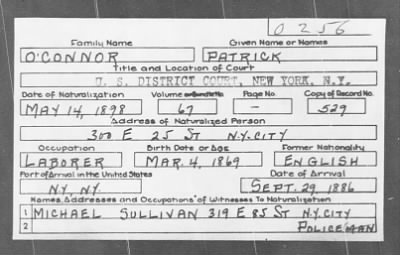 O 256
Family Name Given Name or Names
O'CONNOR PATRICK
Title and Location of Court
U. S. DISTRICT COURT, NEW YORK, N.Y.
Date of Naturalization Volume or Bundle No. Page No. Copy of Record No.
MAY 14, 1898 67 - 529
Address of Naturalized Person
300 E 25 ST N.Y.CITY
Occupation Birth Date or Age Former Nationality
LABORER MAR. 4, 1869 ENGLISH
Port of Arrival in the United States Date of Arrival
N.Y. NY. SEPT. 29, 1886
Names, Addresses and Occupations of Witnesses To Naturalization
1 MICHAEL SULLIVAN 319 E 85 ST N.Y.CITY
2 POLICEMAN